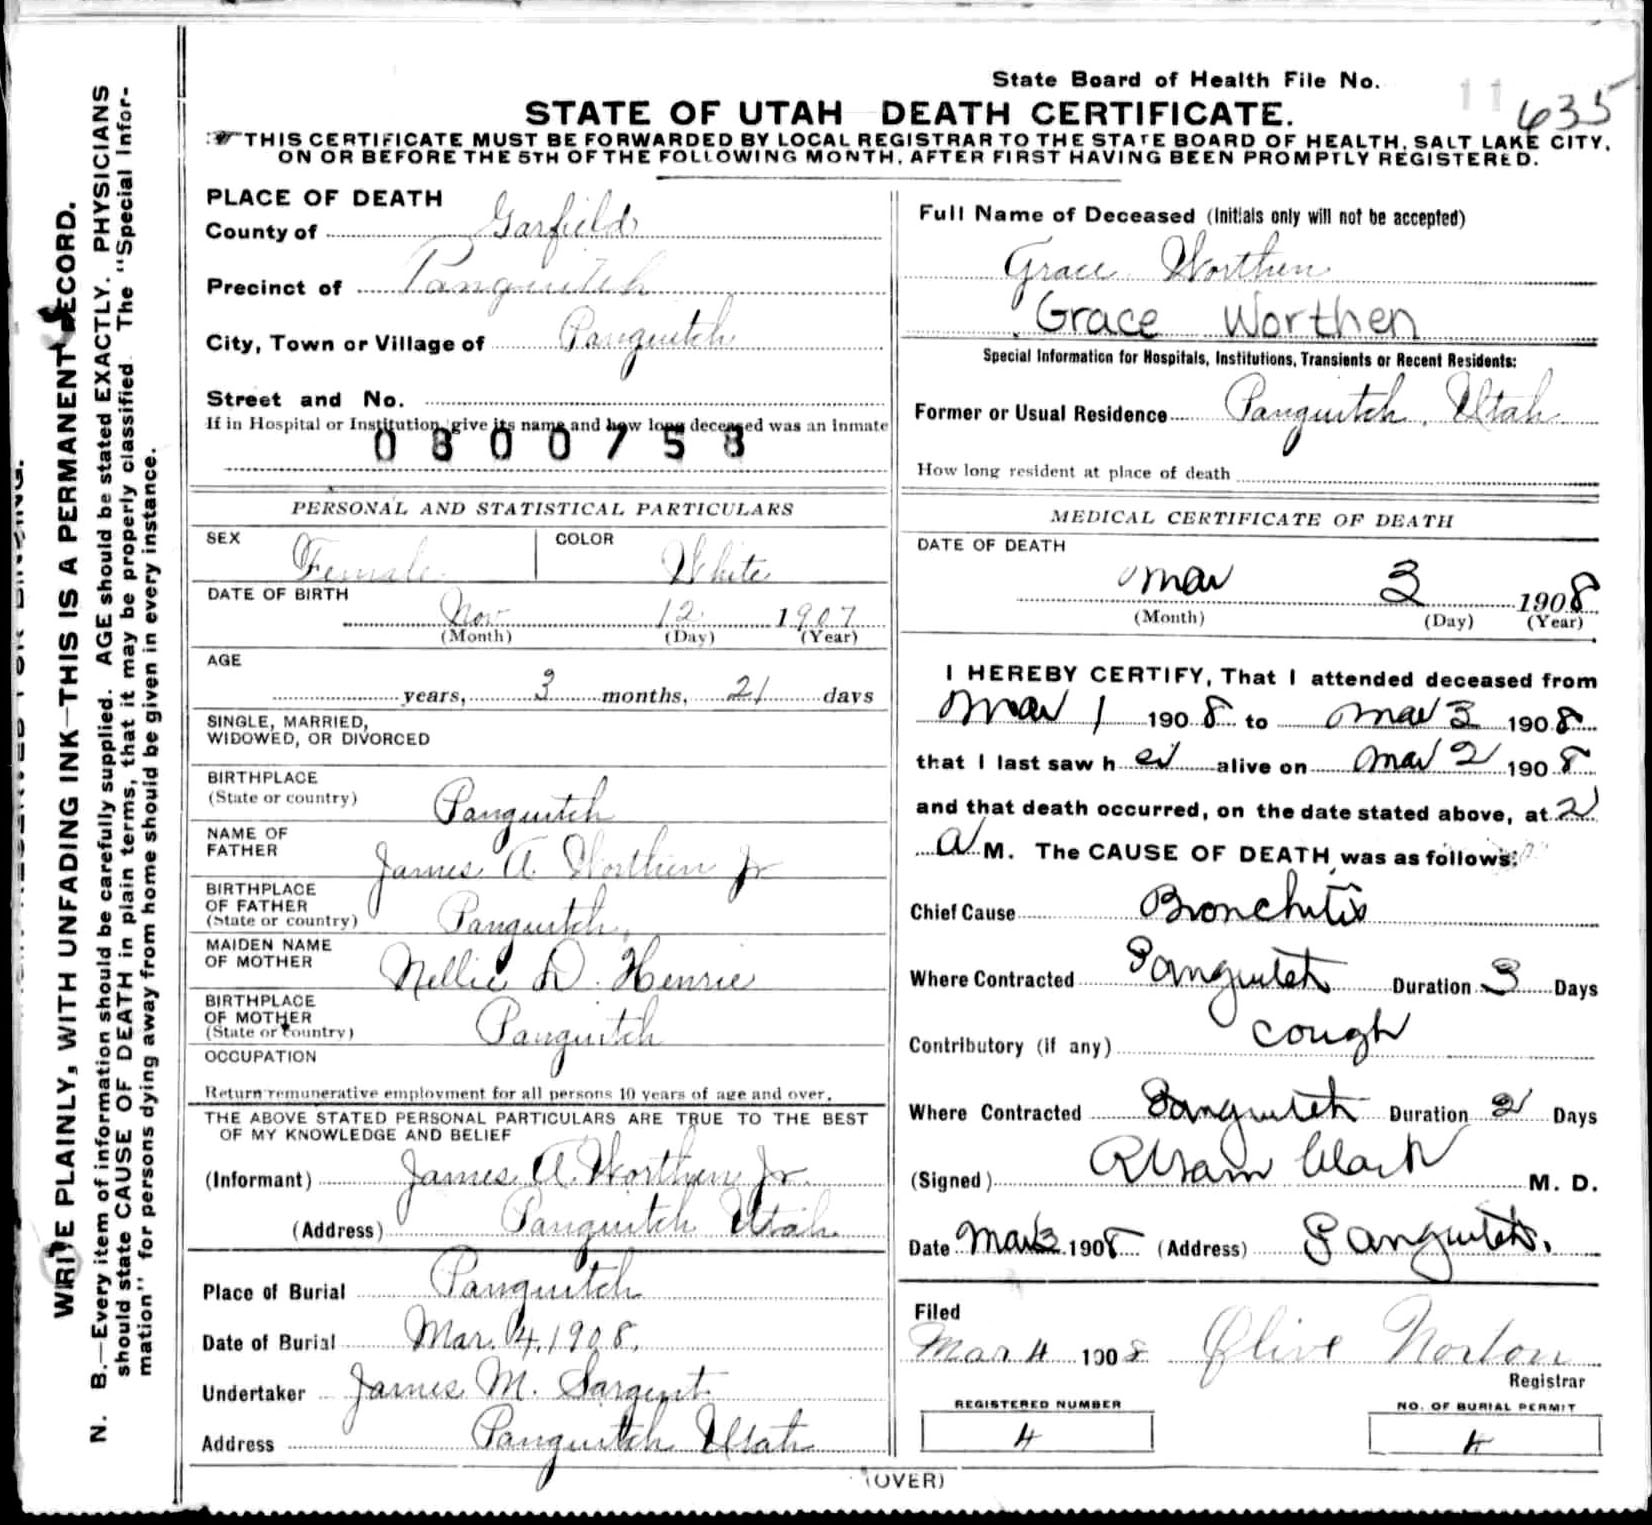 State Board of Health File No. 11 635
STATE OF UTAH DEATH CERTIFICATE.
THIS CERTIFICATE MUST BE FORWARDED BY LOCAL REGISTRAR TO THE STATE BOARD OF HEALTH, SALT LAKE CITY,
ON OR BEFORE THE 5TH OF THE FOLLOWING MONTH, AFTER FIRST HAVING BEEN PROMPTLY REGISTERED.
WRITE PLAINLY, WITH UNFADING INK—THIS IS A PERMANENT RECORD.
N. B.—Every item of information should be carefully supplied. AGE should be stated EXACTLY. PHYSICIANS
should state CAUSE OF DEATH in plain terms, that it may be properly classified. The "Special Infor-
mation" for persons dying away from home should be given in every instance.
PLACE OF DEATH
County of Garfield
Precinct of Panguitch
City, Town or Village of Panguitch
Street and No.
If in Hospital or Institution, give its name and how long deceased was an inmate
0800758
PERSONAL AND STATISTICAL PARTICULARS
SEX Female COLOR White
DATE OF BIRTH
Nov 12 1907
(Month) (Day) (Year)
AGE
years, 3 months, 21 days
SINGLE, MARRIED,
WIDOWED, OR DIVORCED
BIRTHPLACE
(State or country) Panguitch
NAME OF
FATHER James A. Worthen Jr
BIRTHPLACE
OF FATHER
(State or country) Panguitch
MAIDEN NAME
OF MOTHER Nellie D. Henrie
BIRTHPLACE
OF MOTHER
(State or country) Panguitch
OCCUPATION
Return remunerative employment for all persons 10 years of age and over.
THE ABOVE STATED PERSONAL PARTICULARS ARE TRUE TO THE BEST
OF MY KNOWLEDGE AND BELIEF
(Informant) James A. Worthen Jr.
(Address) Panguitch Utah
Place of Burial Panguitch
Date of Burial Mar. 4, 1908.
Undertaker James M. Sargent
Address Panguitch Utah
Full Name of Deceased (Initials only will not be accepted)
Grace Worthen
Grace Worthen
Special Information for Hospitals, Institutions, Transients or Recent Residents:
Former or Usual Residence Panguitch, Utah
How long resident at place of death
MEDICAL CERTIFICATE OF DEATH
DATE OF DEATH
Mar 3 1908
(Month) (Day) (Year)
I HEREBY CERTIFY, That I attended deceased from
Mar 1 1908 to Mar 3 1908
that I last saw her alive on Mar 2 1908
and that death occurred, on the date stated above, at 2
a M. The CAUSE OF DEATH was as follows:
Chief Cause Bronchitis
Where Contracted Panguitch Duration 3 Days
Contributory (if any) cough
Where Contracted Panguitch Duration 2 Days
(Signed) Clark M. D.
Date Mar 3 1908 (Address) Panguitch.
Filed
Mar 4 1908 Olive Norton
Registrar
REGISTERED NUMBER
4
NO. OF BURIAL PERMIT
4
(OVER)